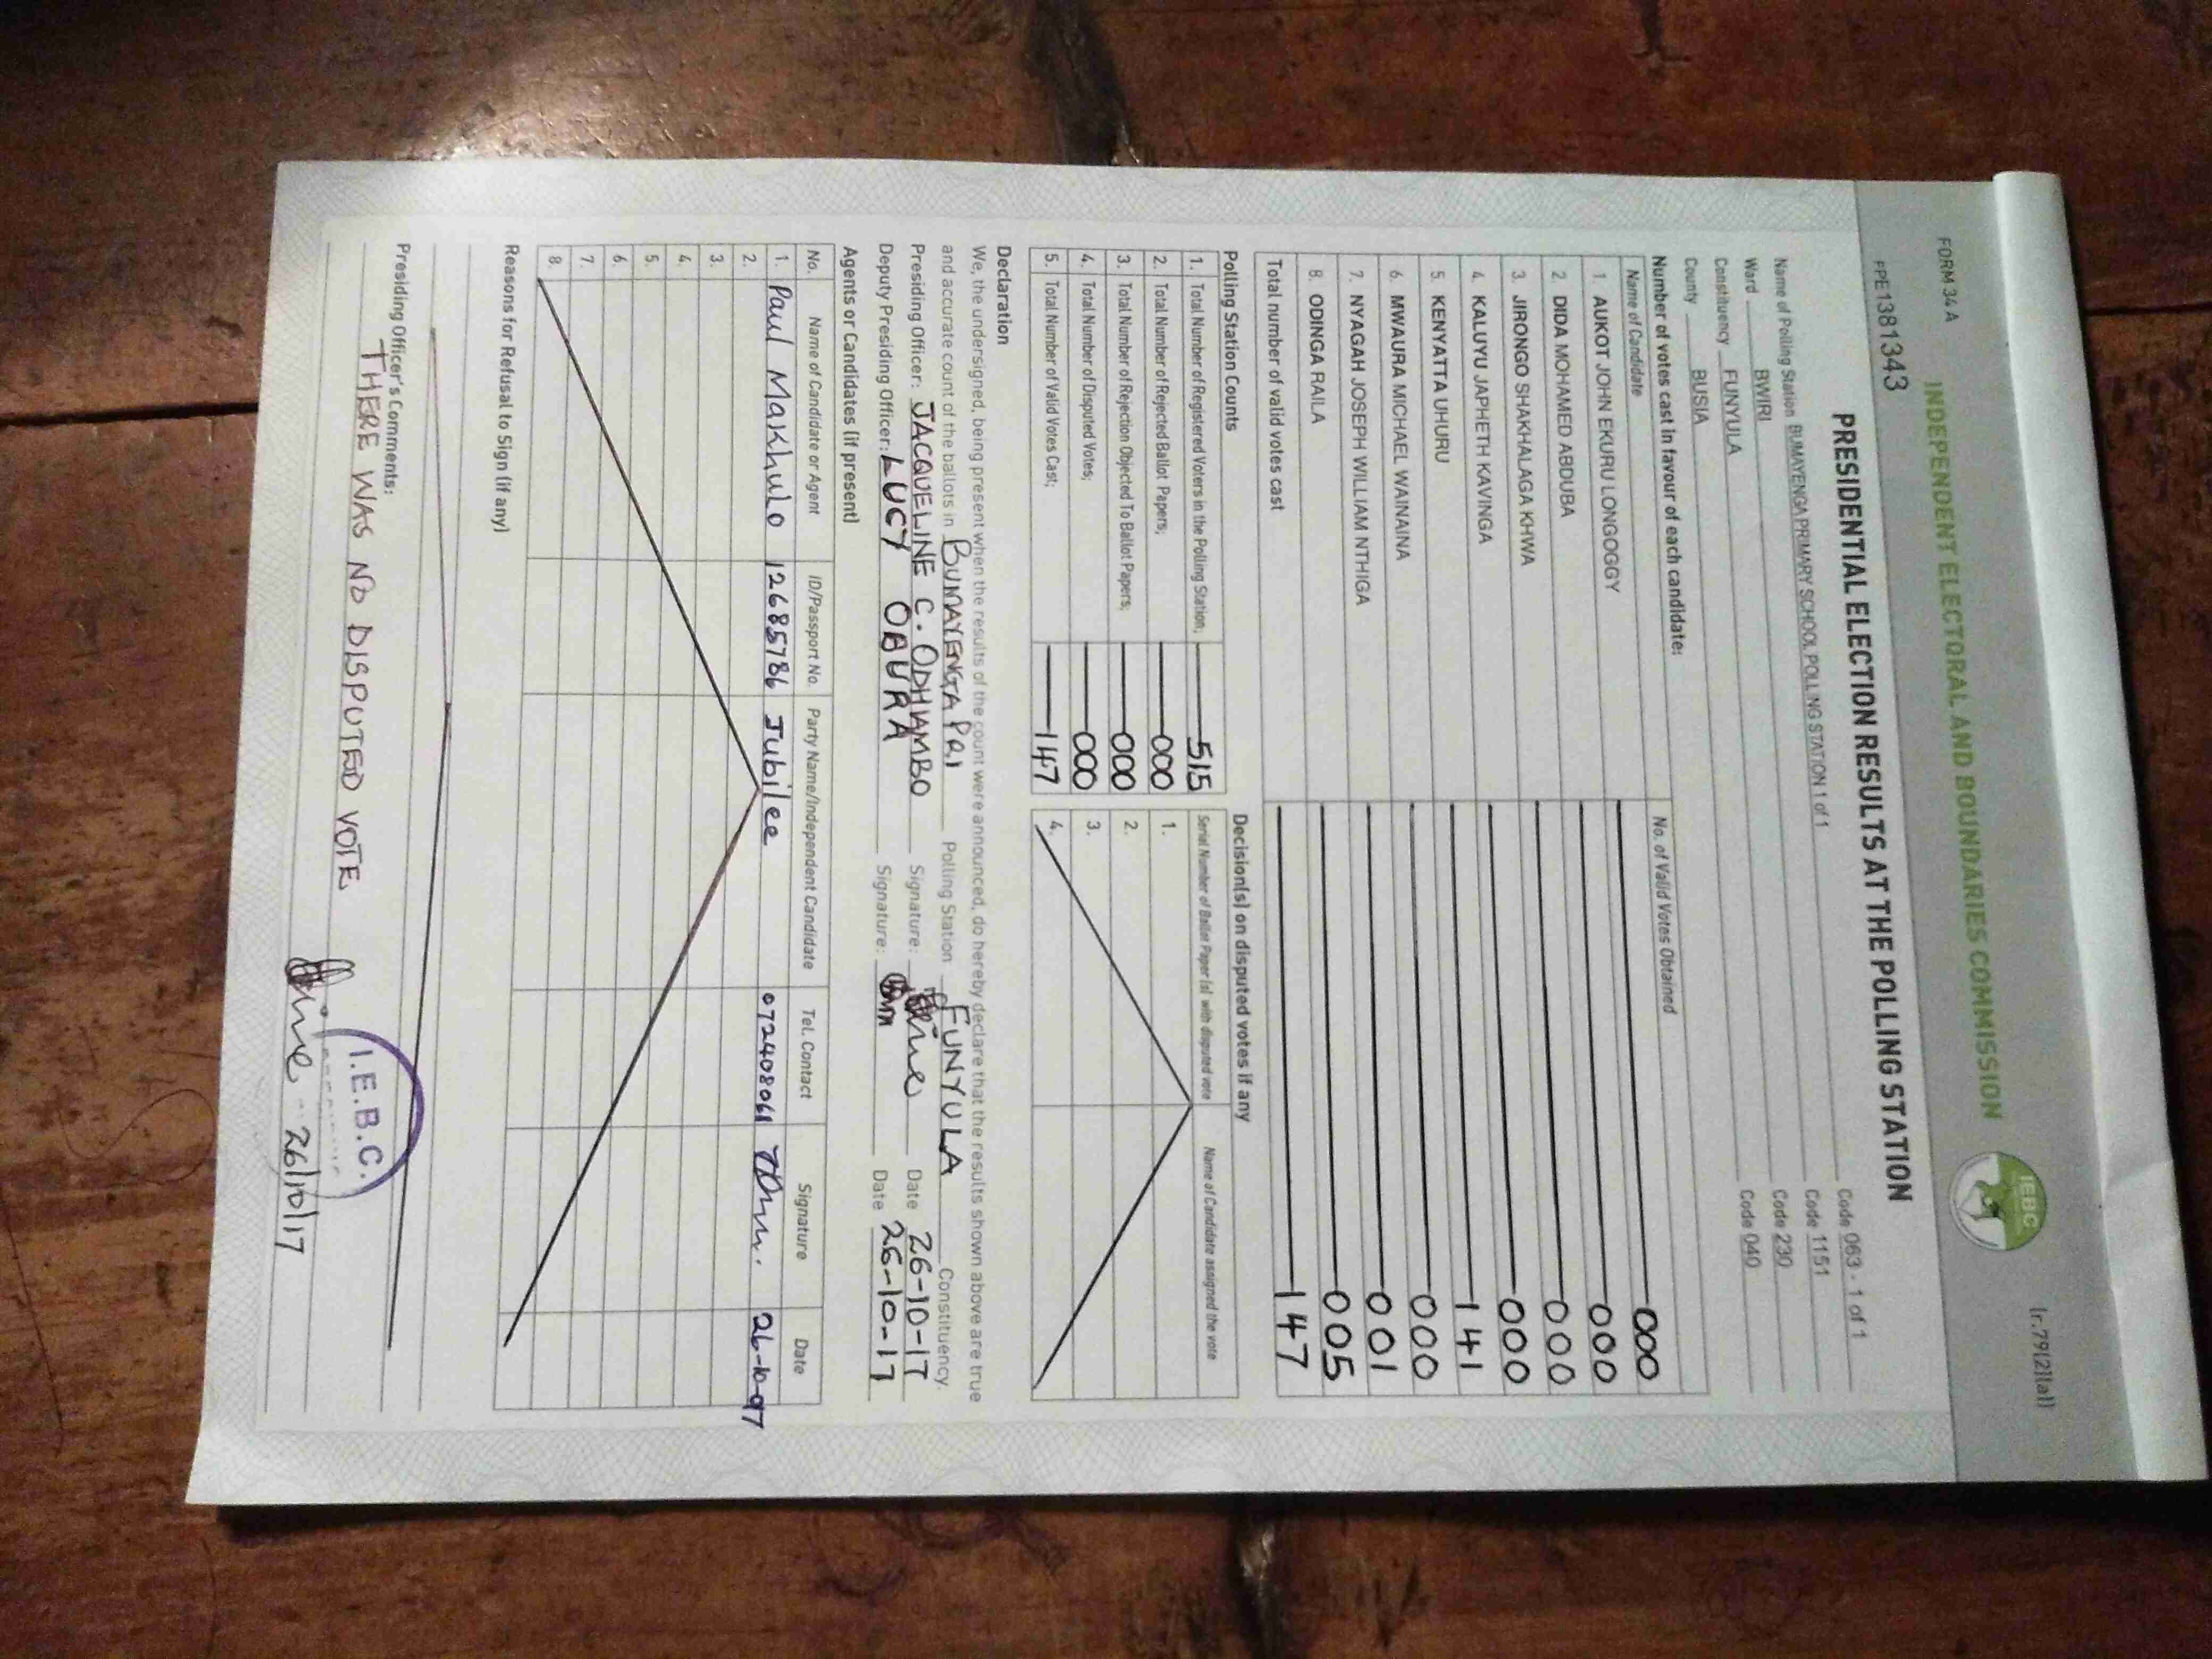 FORM 34 A
(r.79(2)(a))
INDEPENDENT ELECTORAL AND BOUNDARIES COMMISSION
IEBC
PRESIDENTIAL ELECTION RESULTS AT THE POLLING STATION
FPE1381343
Name of Polling Station BUMAYENGA PRIMARY SCHOOL POLLING STATION 1 of 1 Code 063 - 1 of 1
Ward BWIRI Code 1151
Constituency FUNYULA Code 230
County BUSIA Code 040
Number of votes cast in favour of each candidate:
Name of Candidate No. of Valid Votes Obtained
1. AUKOT JOHN EKURU LONGOGGY 000
2. DIDA MOHAMED ABDUBA 000
3. JIRONGO SHAKHALAGA KHWA 000
4. KALUYU JAPHETH KAVINGA 000
5. KENYATTA UHURU 141
6. MWAURA MICHAEL WAINAINA 000
7. NYAGAH JOSEPH WILLIAM NTHIGA 001
8. ODINGA RAILA 005
Total number of valid votes cast 147
Polling Station Counts
1. Total Number of Registered Voters in the Polling Station; 515
2. Total Number of Rejected Ballot Papers; 000
3. Total Number of Rejection Objected To Ballot Papers; 000
4. Total Number of Disputed Votes; 000
5. Total Number of Valid Votes Cast; 147
Decision(s) on disputed votes if any
Serial Number of Ballot Paper (s) with disputed vote Name of Candidate assigned the vote
1.
2.
3.
4.
Declaration
We, the undersigned, being present when the results of the count were announced, do hereby declare that the results shown above are true
and accurate count of the ballots in BUMAYENGA PRI Polling Station FUNYULA Constituency.
Presiding Officer: JACQUELINE C. ODHIAMBO Signature: Date 26-10-17
Deputy Presiding Officer: LUCY OBURA Signature: Date 26-10-17
Agents or Candidates (if present)
No. Name of Candidate or Agent ID/Passport No. Party Name/Independent Candidate Tel. Contact Signature Date
1. Paul Makhulo 12685786 Jubilee 072408061 26-10-97
2.
3.
4.
5.
6.
7.
8.
Reasons for Refusal to Sign (if any)
Presiding Officer's Comments:
THERE WAS NO DISPUTED VOTE
I.E.B.C.
26/10/17